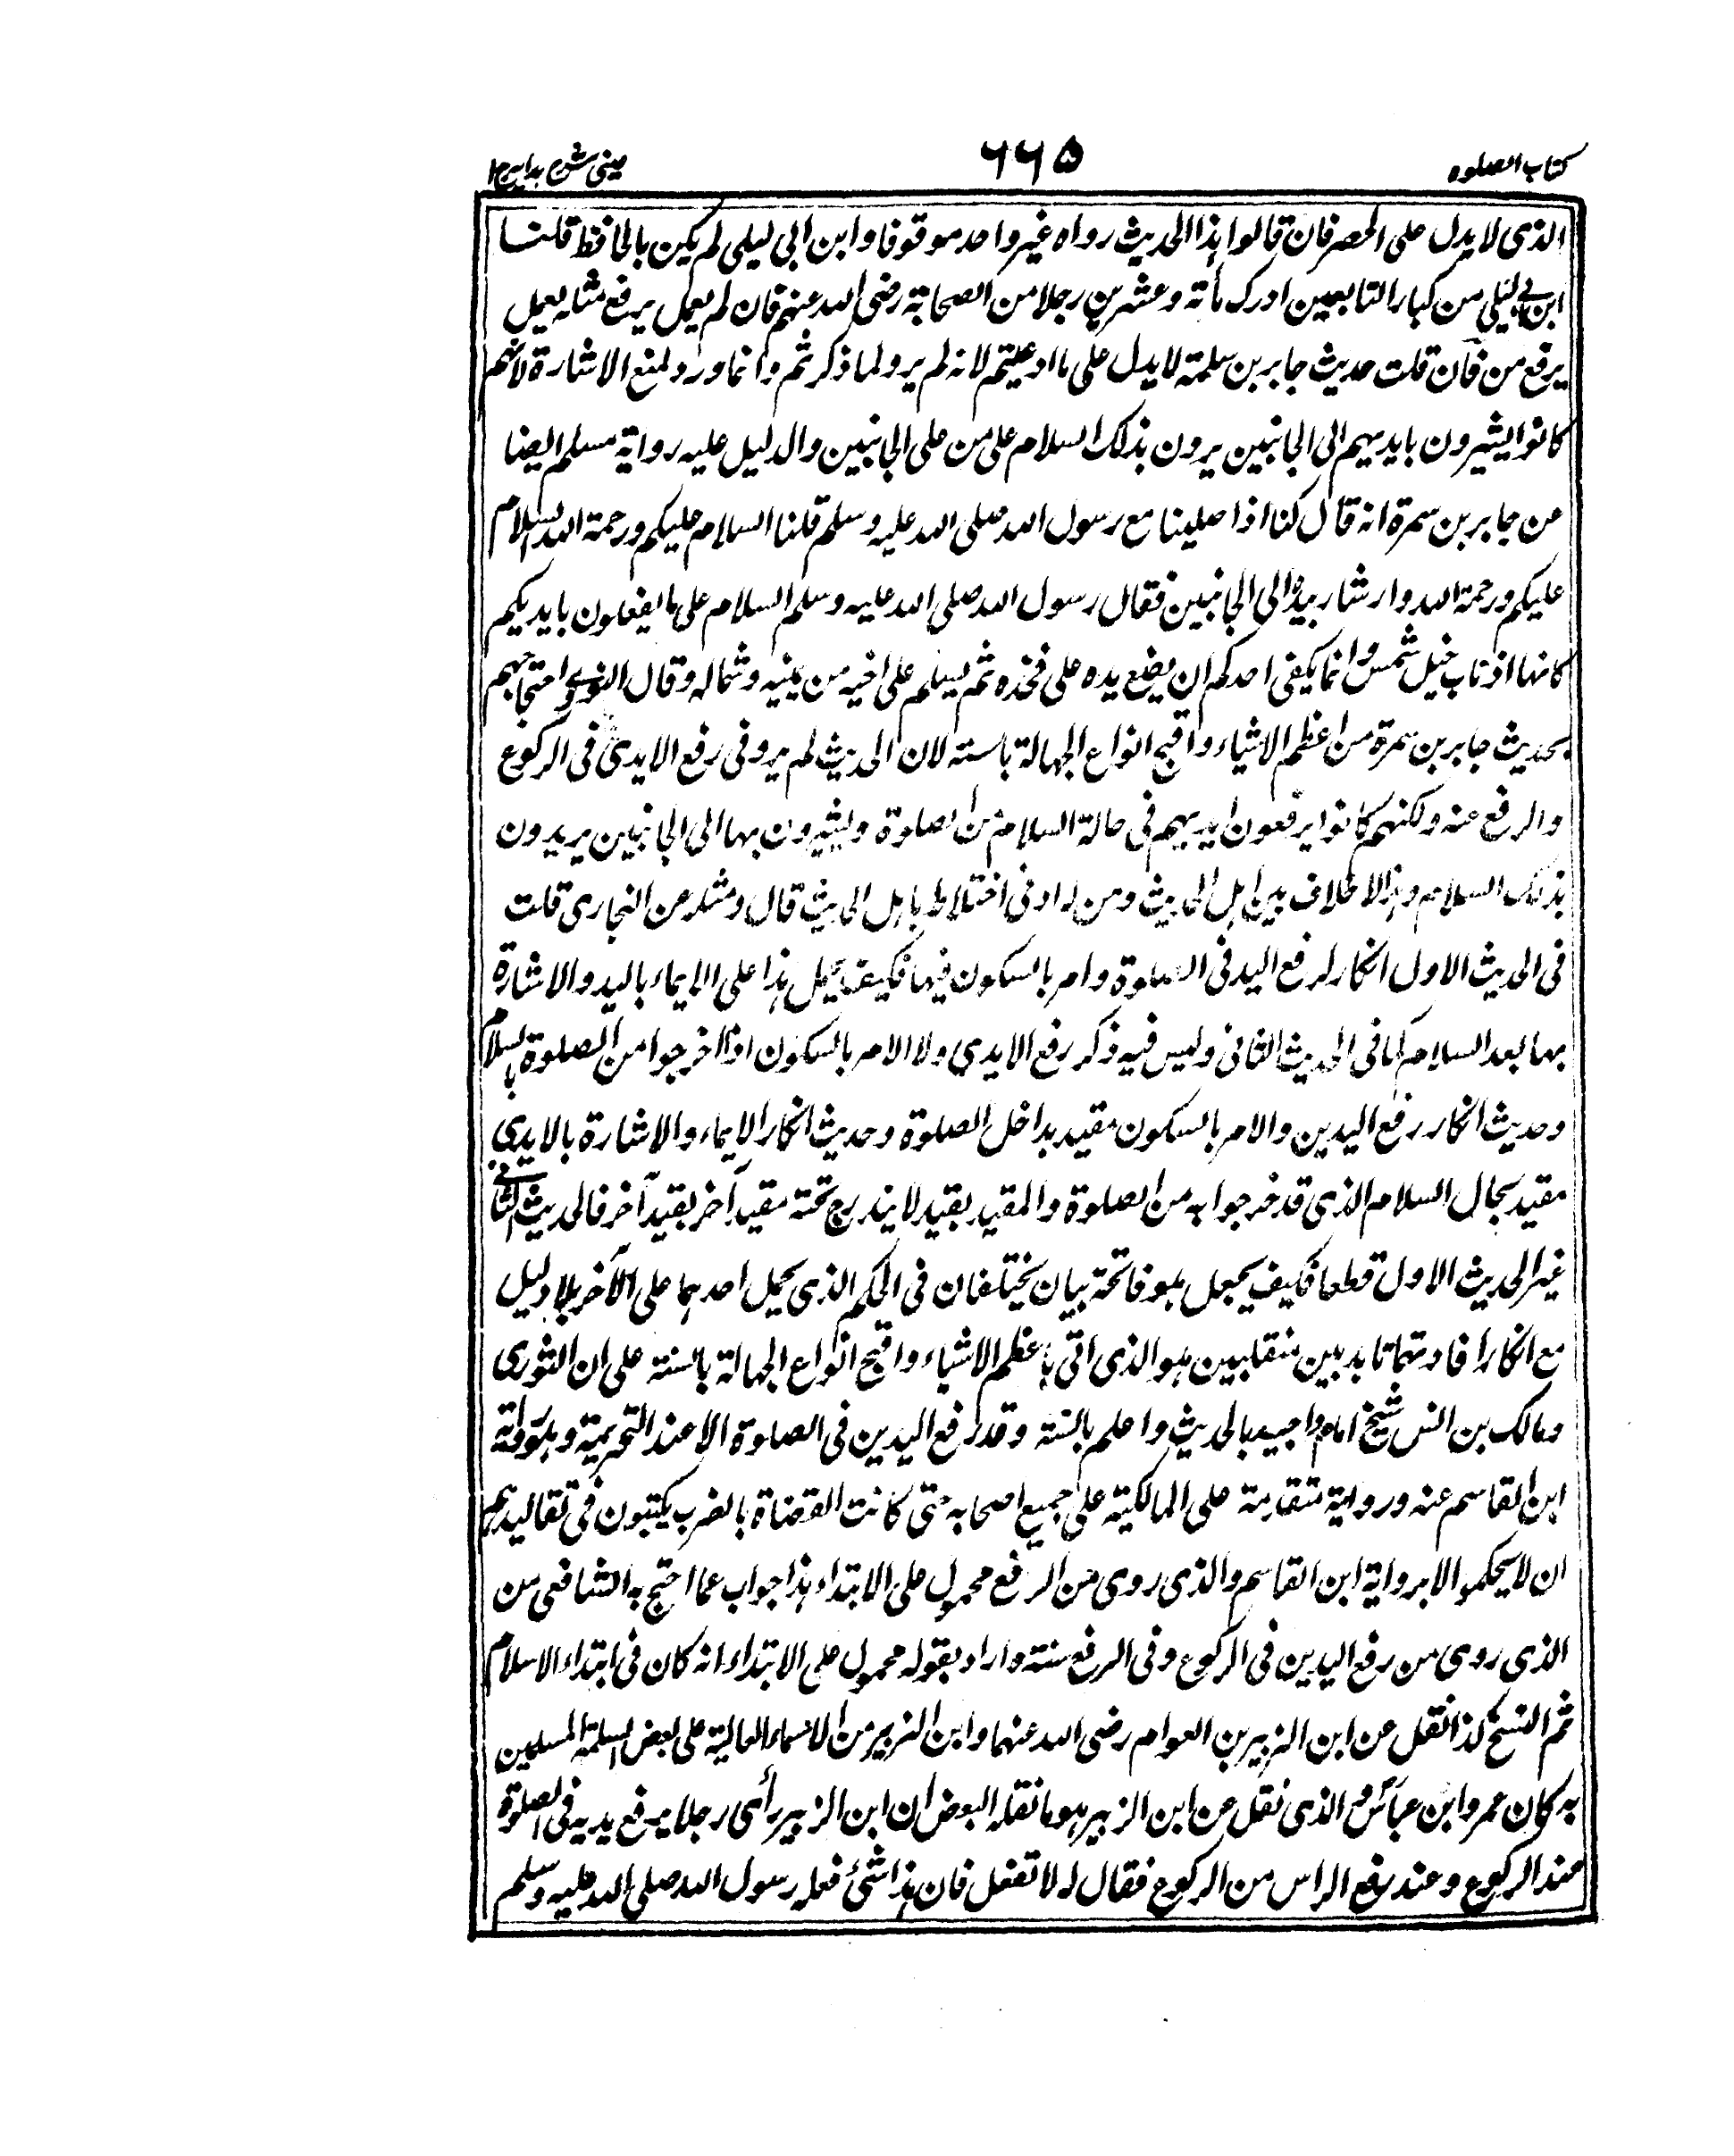 كتاب الصلوة
٦٦٥
عينى شرح هدايه ج١
الذى لا يدل على الحصر فان قالوا هذا الحديث رواه غير واحد موقوفا وابن ابى ليلى لم يكن بالحافظ قلنا
ابن ابى ليلى من كبار التابعين ادرك مأته وعشرين رجلا من الصحابة رضى الله عنهم فان لم يعمل يرفع مثله يعمل
يرفع من فان قلت حديث جابر بن سلمة لا يدل على ما ادعيتم لانه لم يرو لما ذكر ثم وانما ورد لمنع الاشارة لانهم
كانوا يشيرون بايديهم الى الجانبين يرون بذلك السلام على من على الجانبين والدليل عليه رواية مسلم ايضا
عن جابر بن سمرة انه قال كنا اذا صلينا مع رسول الله صلى الله عليه وسلم قلنا السلام عليكم ورحمة الله السلام
عليكم ورحمة الله وارشار بيده الى الجانبين فقال رسول الله صلى الله عليه وسلم السلام على ما يفعلون بايديكم
كانها اذناب خيل شمس وانما يكفى احدكم ان يضع يده على فخذه ثم يسلم على اخيه من يمينه وشماله وقال النووى احتجاجهم
بحديث جابر بن سمرة من اعظم الاشياء واقبح انواع الجهالة بالسنة لان الحديث لم يرو فى رفع الايدى فى الركوع
والرفع عنه ولكنهم كانوا يرفعون ايديهم فى حالة السلام من الصلوة ويشيرون بها الى الجانبين يريدون
بذلك السلام وهذا لا خلاف بين اهل الحديث ومن له ادنى اختلاط باهل الحديث قال ومثله عن البخارى قلت
فى الحديث الاول انكار لرفع اليد فى الصلوة وامر بالسكون فيها فكيف يحمل هذا على الايماء باليد والاشارة
بها بعد السلام كما فى الحديث الثانى وليس فيه ذكر رفع الايدى ولا الامر بالسكون اذا خرجوا من الصلوة بالسلام
وحديث انكار رفع اليدين والامر بالسكون مقيد بداخل الصلوة وحديث انكار الايماء والاشارة بالايدى
مقيد بحال السلام الذى قد خرجوا به من الصلوة والمقيد بقيد لا يندرج تحته مقيد آخر بقيد آخر فالحديث الثانى
غير الحديث الاول قطعا فكيف يجعل هو فاتحة بيان يختلفان فى الحكم الذى يحمل احدهما على الآخر بلا دليل
مع انكار افادتهما هو الذى اتى باعظم الاشياء واقبح انواع الجهالة بالسنة على ان الثورى
ومالك بن انس شيخ امام واجيد بالحديث واعلم بالسنة وقد رفع اليدين فى الصلوة الا عند التحريمة وهو رواية
ابن القاسم عنه ورواية متقدمة على المالكية على جميع اصحابه حتى كانت القضاة بالضرب يكتبون فى تقاليدهم
ان لا يحكموا الا برواية ابن القاسم والذى روى من الرفع محمول على الابتداء هذا جواب عما احتج به الشافعى من
الذى روى من رفع اليدين فى الركوع وفى الرفع سنة واراد بقوله محمول على الابتداء انه كان فى ابتداء الاسلام
ثم النسخ كذا نقل عن ابن الزبير بن العوام رضى الله عنهما وابن الزبير من الاسماء العالية على بعض المسلمين
به كان عمر وابن عباس والذى نقل عن ابن الزبير هو ما نقله البعض ان ابن الزبير رأى رجلا يرفع يديه فى الصلوة
عند الركوع وعند رفع الراس من الركوع فقال له لا تفعل فان هذا شئ فعله رسول الله صلى الله عليه وسلم